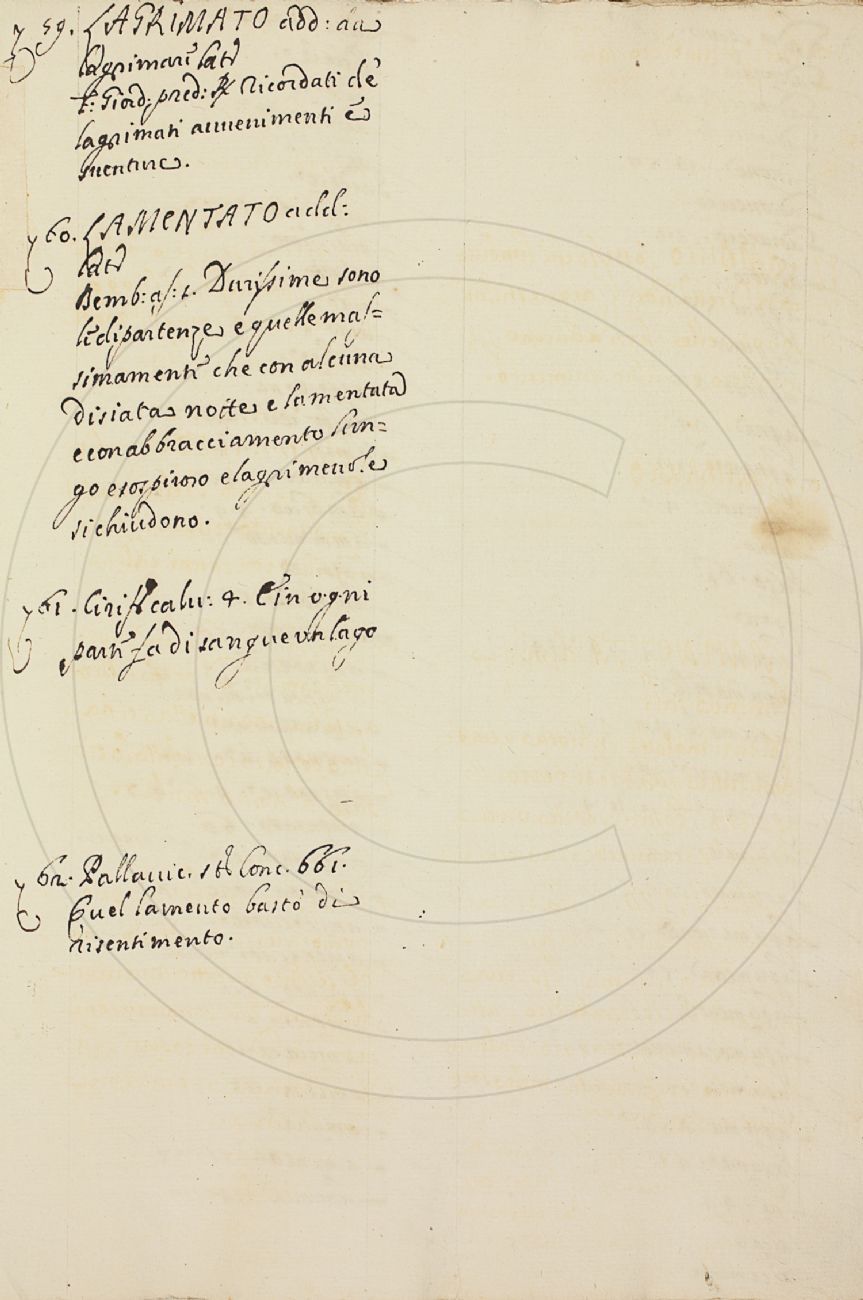 59. LAGRIMATO add: da
lagrimare lat
F: Giord: pred: R Ricordati de
lagrimati avvenimenti e
sventure.
60. LAMENTATO add:
lat
Bemb: as: 1. Durissime sono
le dipartenze e quelle mas=
simamente che con alcuna
disiata notte e lamentata
e con abbracciamento lun=
go e sospiroso e lagrimevole
si chiudono.
61. Ciriff calv: 4. E in ogni
parte fa di sangue un lago
62. Pallavic. st Conc. 661.
Quel lamento bastò di
risentimento.